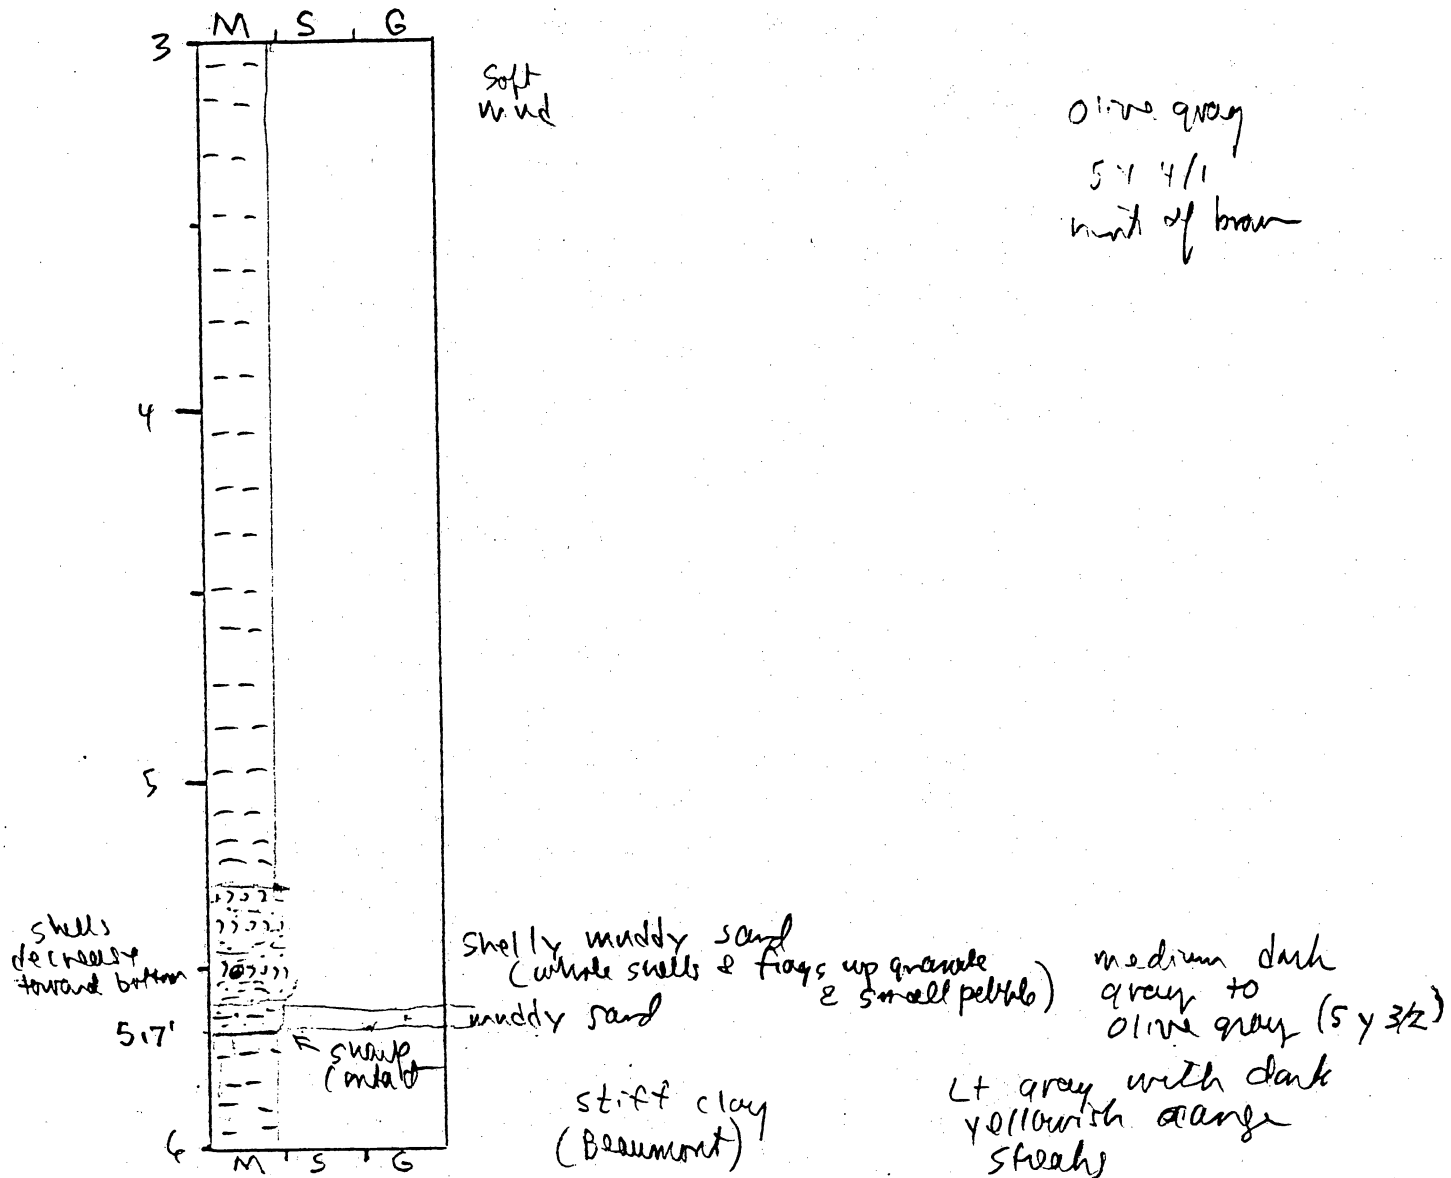 M S G
3
Soft
mud
olive gray
5 Y 4/1
hint of brown
4
5
shells
decrease
toward bottom
shelly muddy sand
(whole shells & frags up granule
& small pebble)
medium dark
gray to
olive gray (5 y 3/2)
muddy sand
5.7'
sharp
contact
stiff clay
(Beaumont)
Lt gray with dark
yellowish orange
streaks
6
M S G